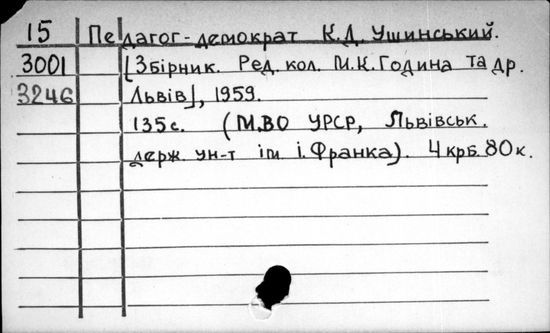 15 Педагог-демократ К.Д. Ушинський.
3001 [Збірник. Ред. кол. М.К. Година та др.
3246 Львів], 1959.
135с. (М.ВО УРСР, Львівськ.
держ. ун-т ім. І. Франка). 4 крб. 80 к.